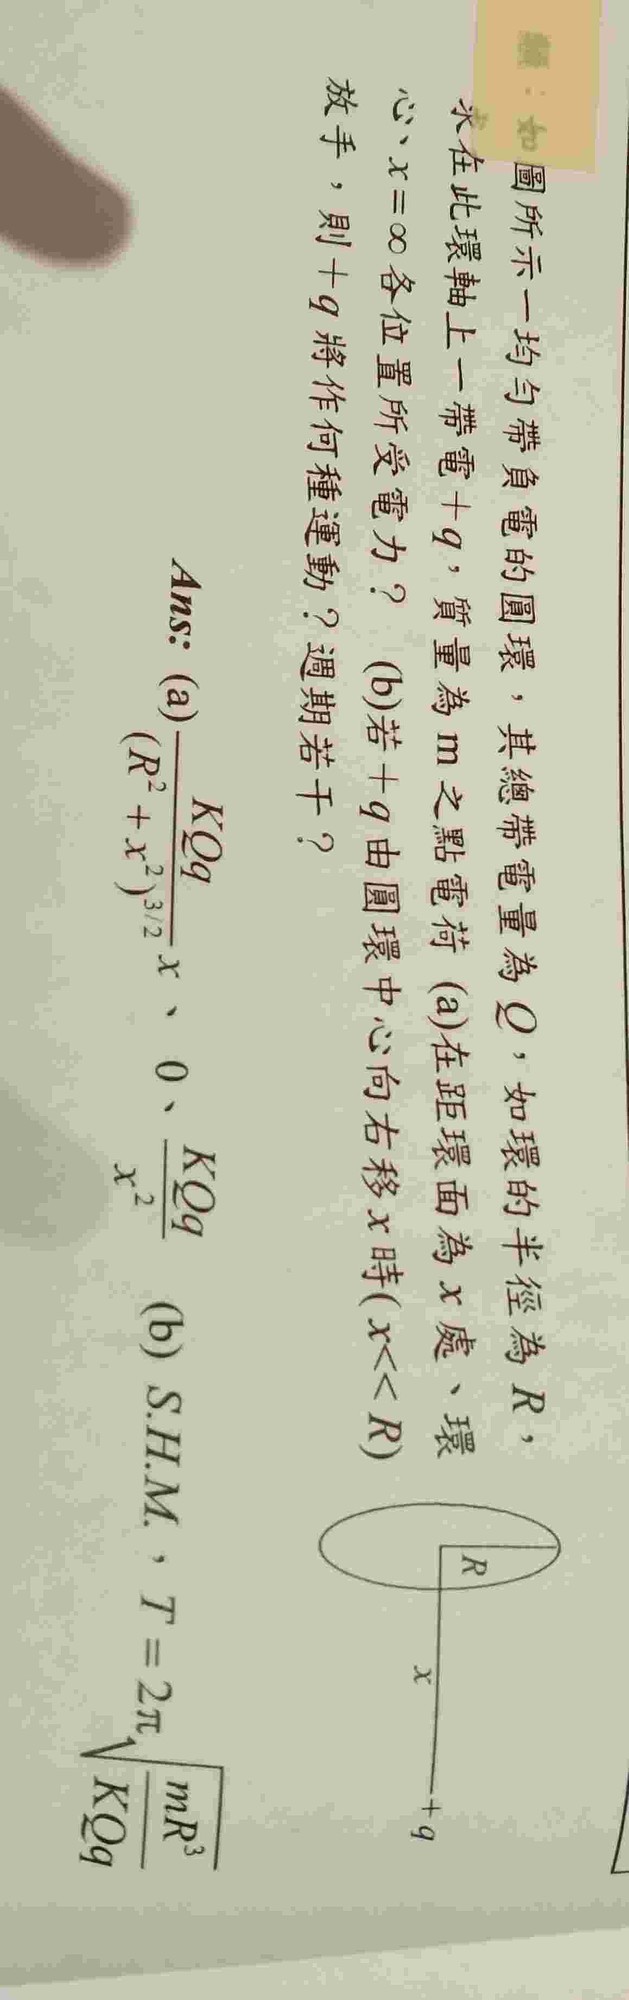 如圖所示一均勻帶負電的圓環，其總帶電量為Q，如環的半徑為R，
求在此環軸上一帶電+q，質量為m之點電荷 (a)在距環面為x處、環
心、x=∞各位置所受電力？ (b)若+q由圓環中心向右移x時(x<<R)
放手，則+q將作何種運動？週期若干？
R
x
+q
Ans: (a) KQq/(R²+x²)^{3/2} x、0、KQq/x² (b) S.H.M.，T=2π√(mR³/KQq)